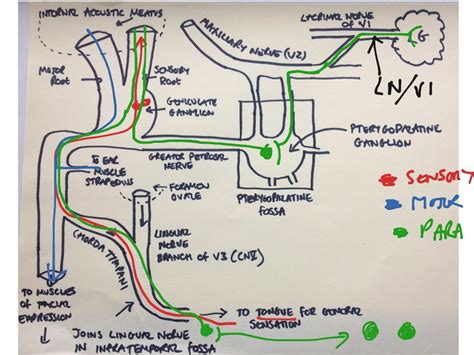 INTERNAL ACOUSTIC MEATUS
MOTOR
ROOT
SENSORY
ROOT
GENICULATE
GANGLION
MAXILLARY NERVE (V2)
LACRIMAL NERVE
OF V1
G
LN/V1
PTERYGOPALATINE
GANGLION
GREATER PETROSAL
NERVE
PTERYGOPALATINE
FOSSA
TO EAR
MUSCLE
STAPEDIUS
FORAMEN
OVALE
SENSORY
MOTOR
PARA
LINGUAL
NERVE
BRANCH OF V3 (CNV)
CHORDA TYMPANI
TO MUSCLES
OF FACIAL
EXPRESSION
TO TONGUE FOR GENERAL
SENSATION
JOINS LINGUAL NERVE
IN INFRATEMPORAL FOSSA